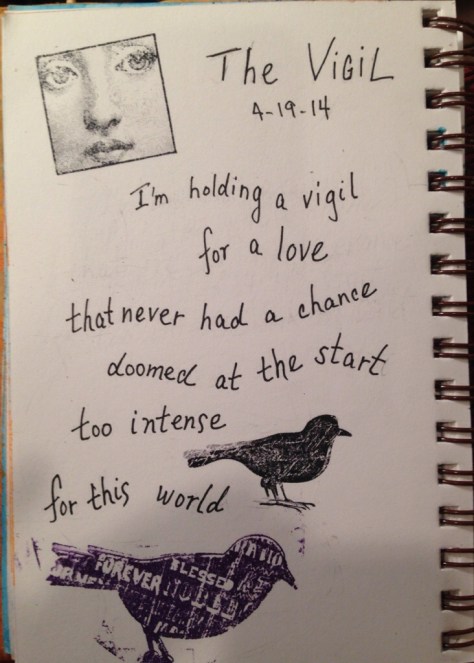 The Vigil
4-19-14
I'm holding a vigil
for a love
that never had a chance
doomed at the start
too intense
for this world
BLESSED
FOREVER